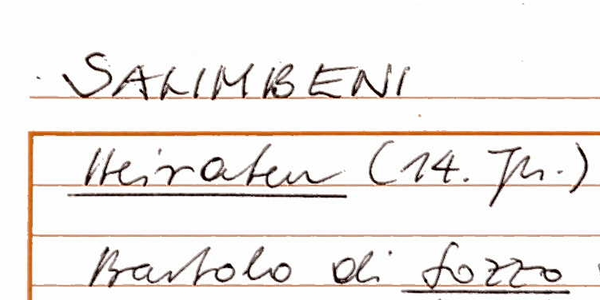 SALIMBENI
Heiraten (14. Jh.)
Bartolo di Sozzo